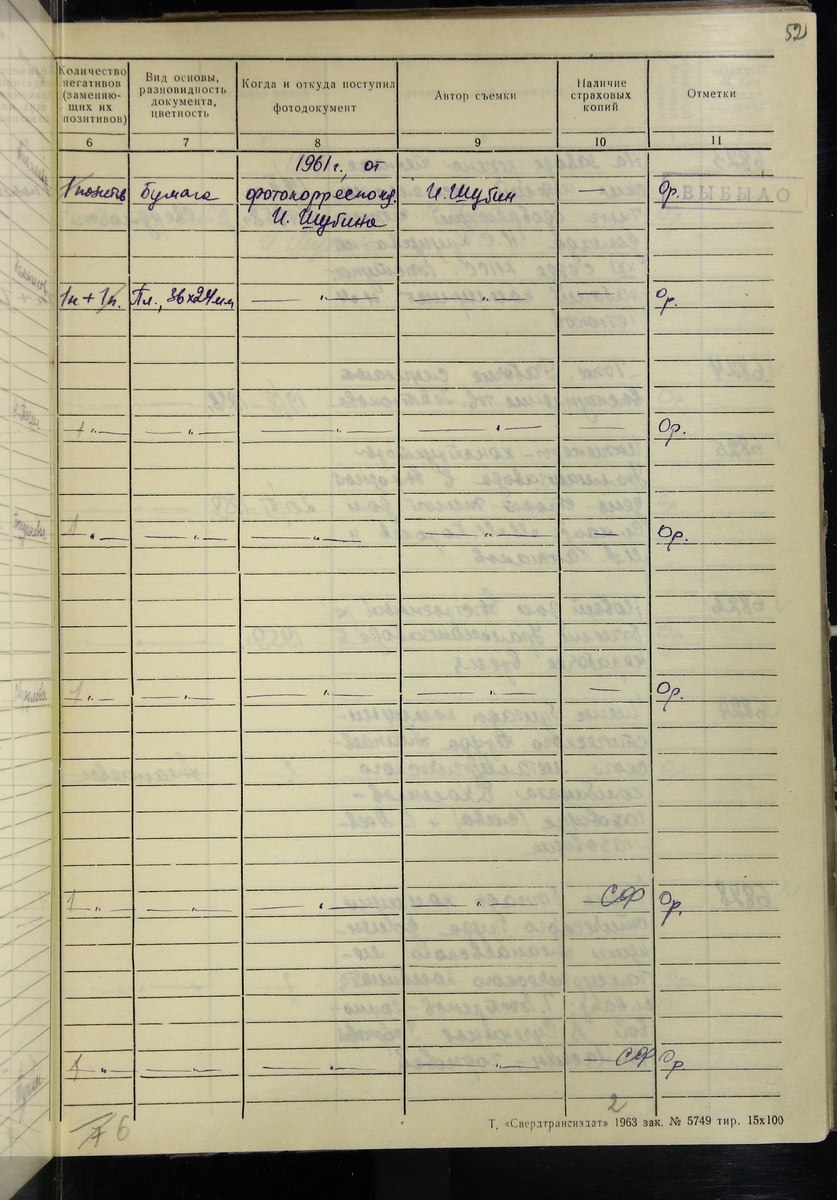 52
Количество негативов (заменяю- щих их позитивов)
Вид основы, разновидность документа, цветность
Когда и откуда поступил фотодокумент
Автор съемки
Наличие страховых копий
Отметки
6 7 8 9 10 11
1961 г., от
1 позитв Бумага фотокорреспонд. И. Шубин — Ор. ВЫБЫЛО
И. Шубина
1н + 1п. Пл., 36х24мм —„— —„— — Ор.
1 —„— —„— —„— —„— — Ор.
1 —„— —„— —„— —„— — Ор.
1 —„— —„— —„— —„— — Ор.
1 —„— —„— —„— —„— СФ Ор.
1 —„— —„— —„— —„— СФ Ор
6 2
Т. «Свердтрансиздат» 1963 зак. № 5749 тир. 15х100